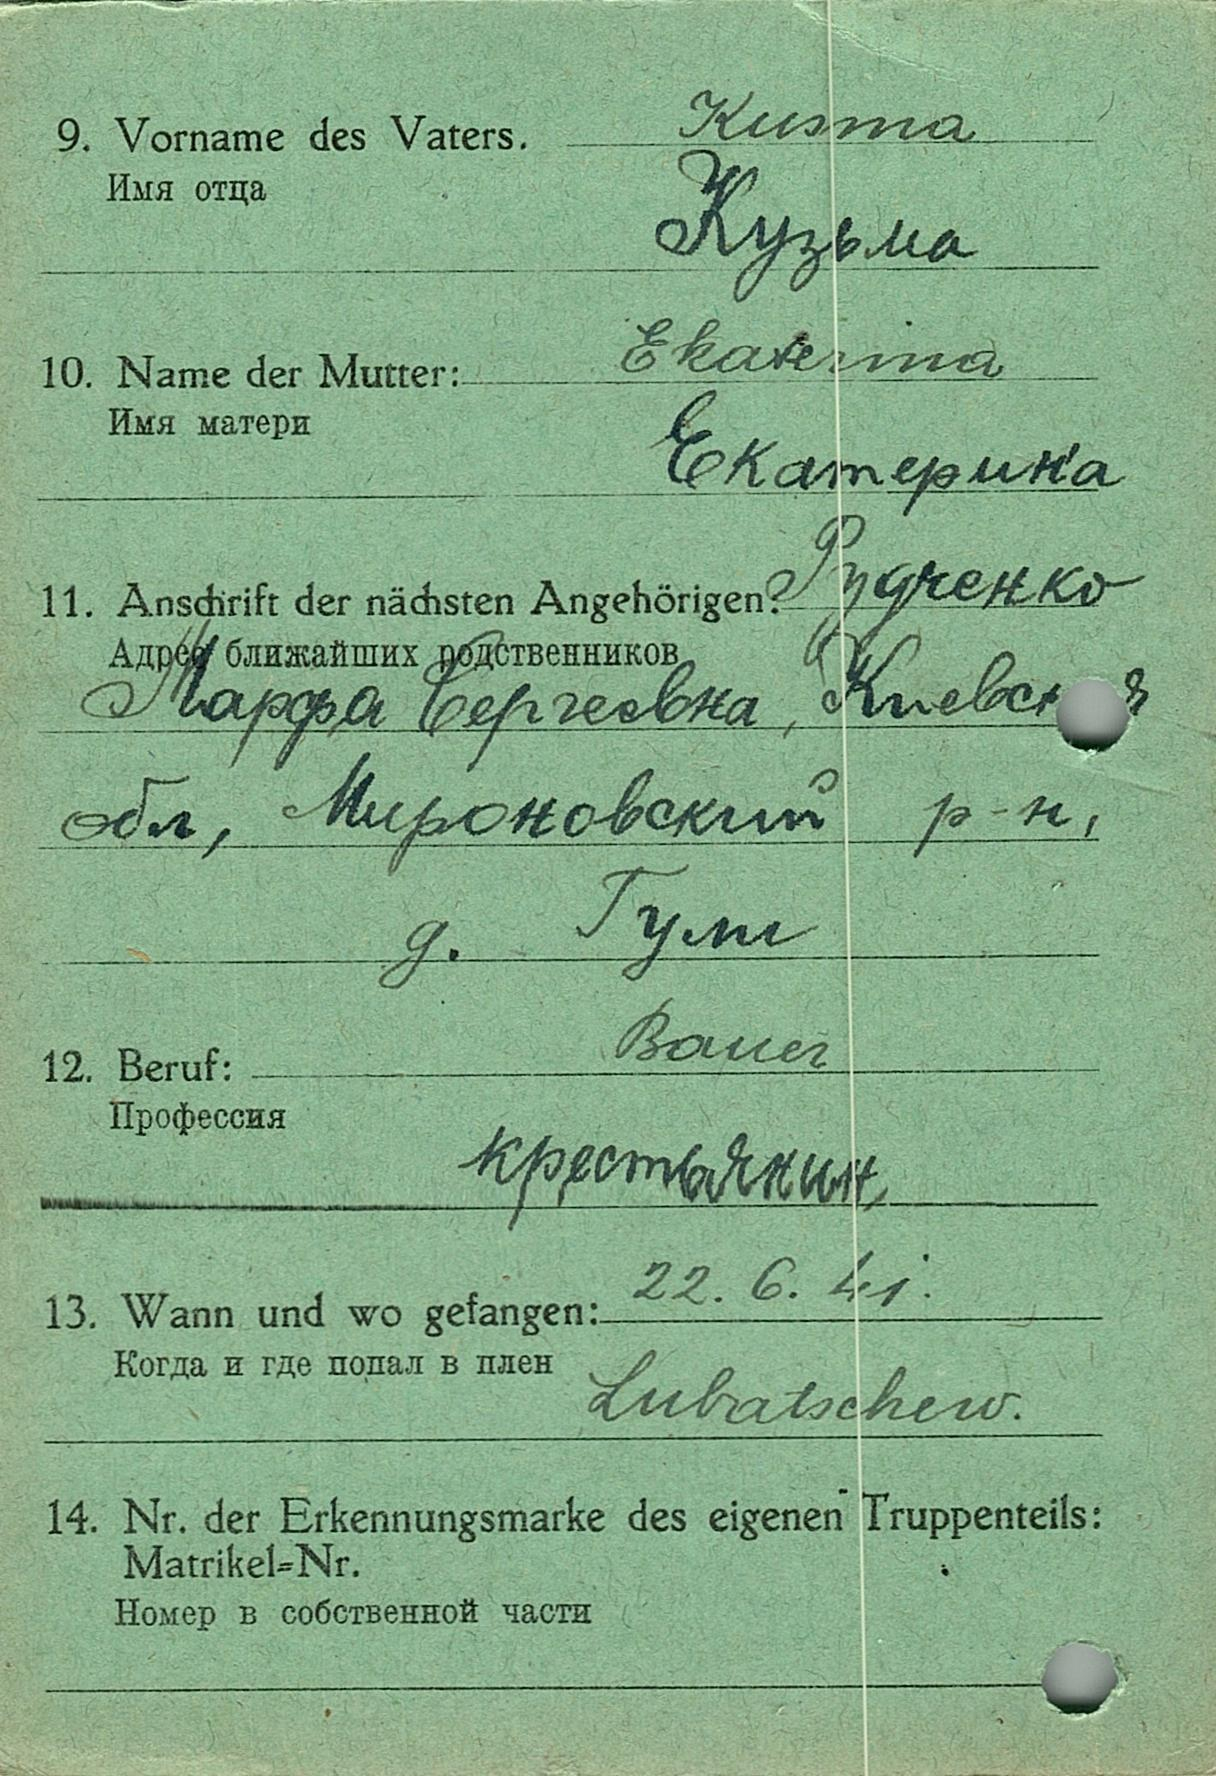 Kusma
9. Vorname des Vaters.
Имя отца
Кузьма
Ekaterina
10. Name der Mutter:
Имя матери
Екатерина
11. Anschrift der nächsten Angehörigen: Рудченко
Адрес ближайших родственников
Марфа Сергеевна, Киевская
обл, Мироновский р-н,
д. Гули
Bauer
12. Beruf:
Профессия
крестьянин,
13. Wann und wo gefangen: 22. 6. 41.
Когда и где попал в плен
Lubatschew.
14. Nr. der Erkennungsmarke des eigenen Truppenteils:
Matrikel=Nr.
Номер в собственной части